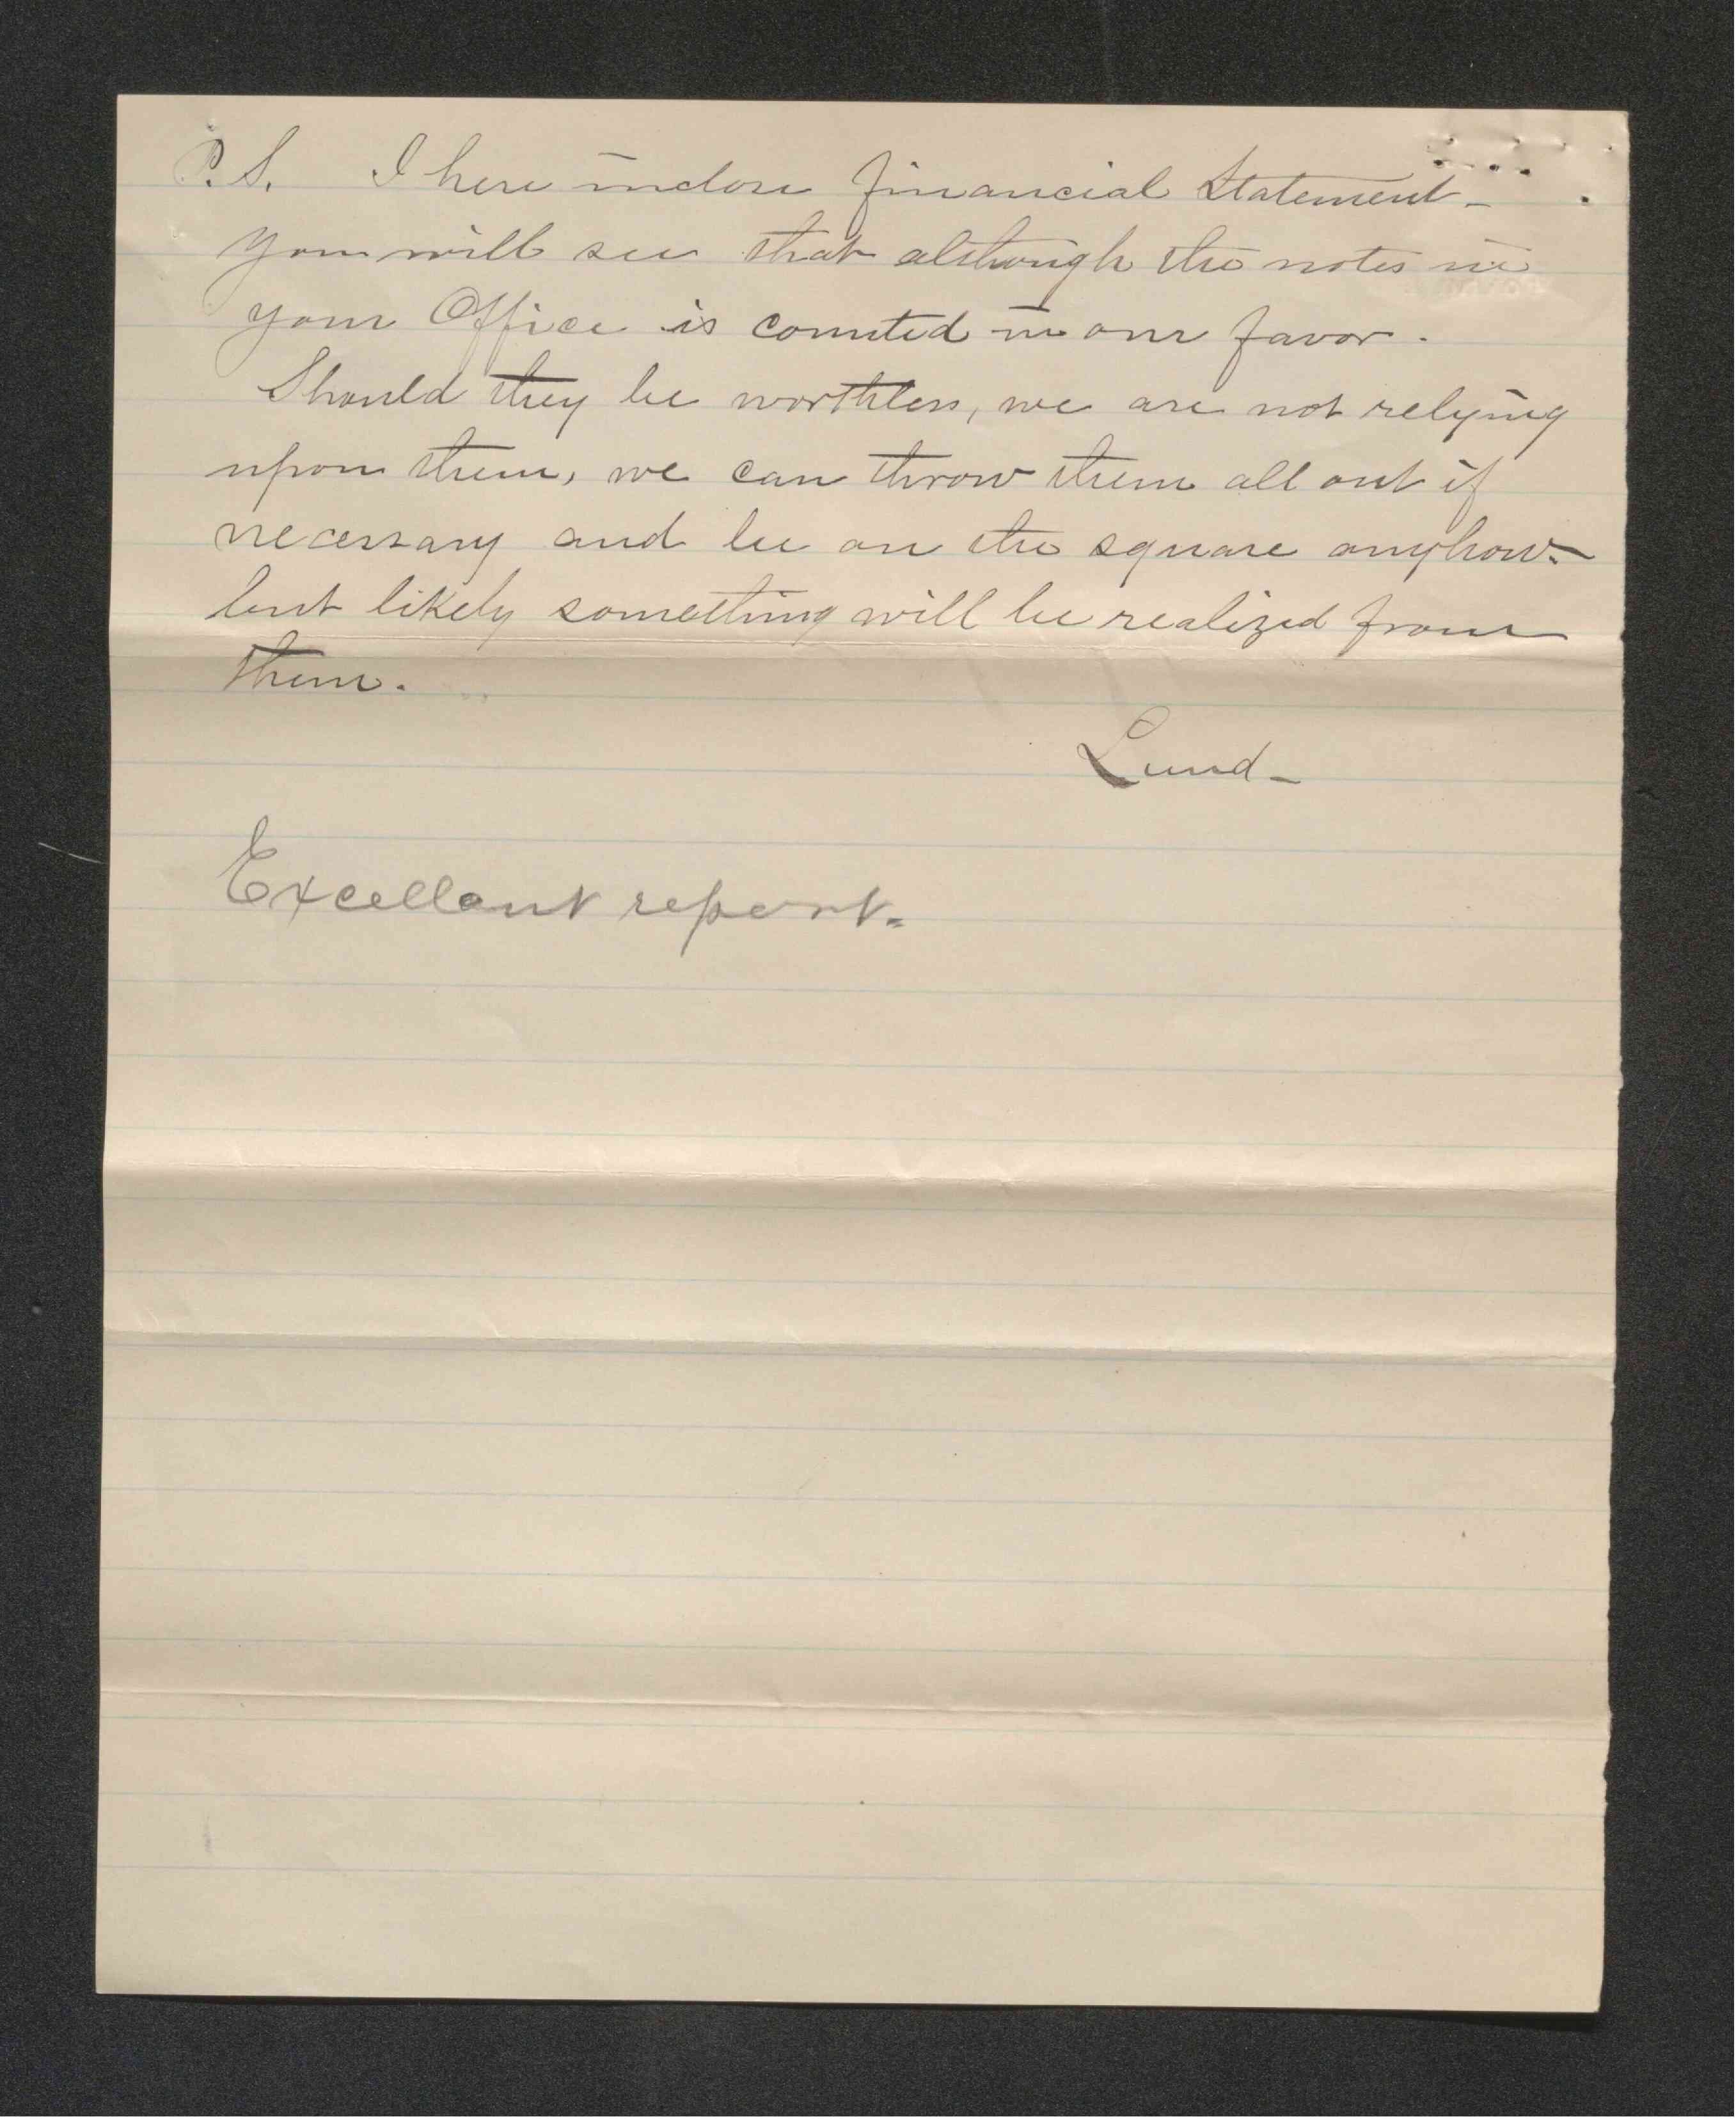 P.S. I here inclose financial Statement-
you will see that although the notes in
your Office is counted in our favor.
Should they be worthless, we are not relying
upon them, we can throw them all out if
necessary and be on the square anyhow-
but likely something will be realized from
them.
Lund-
Excellent report.